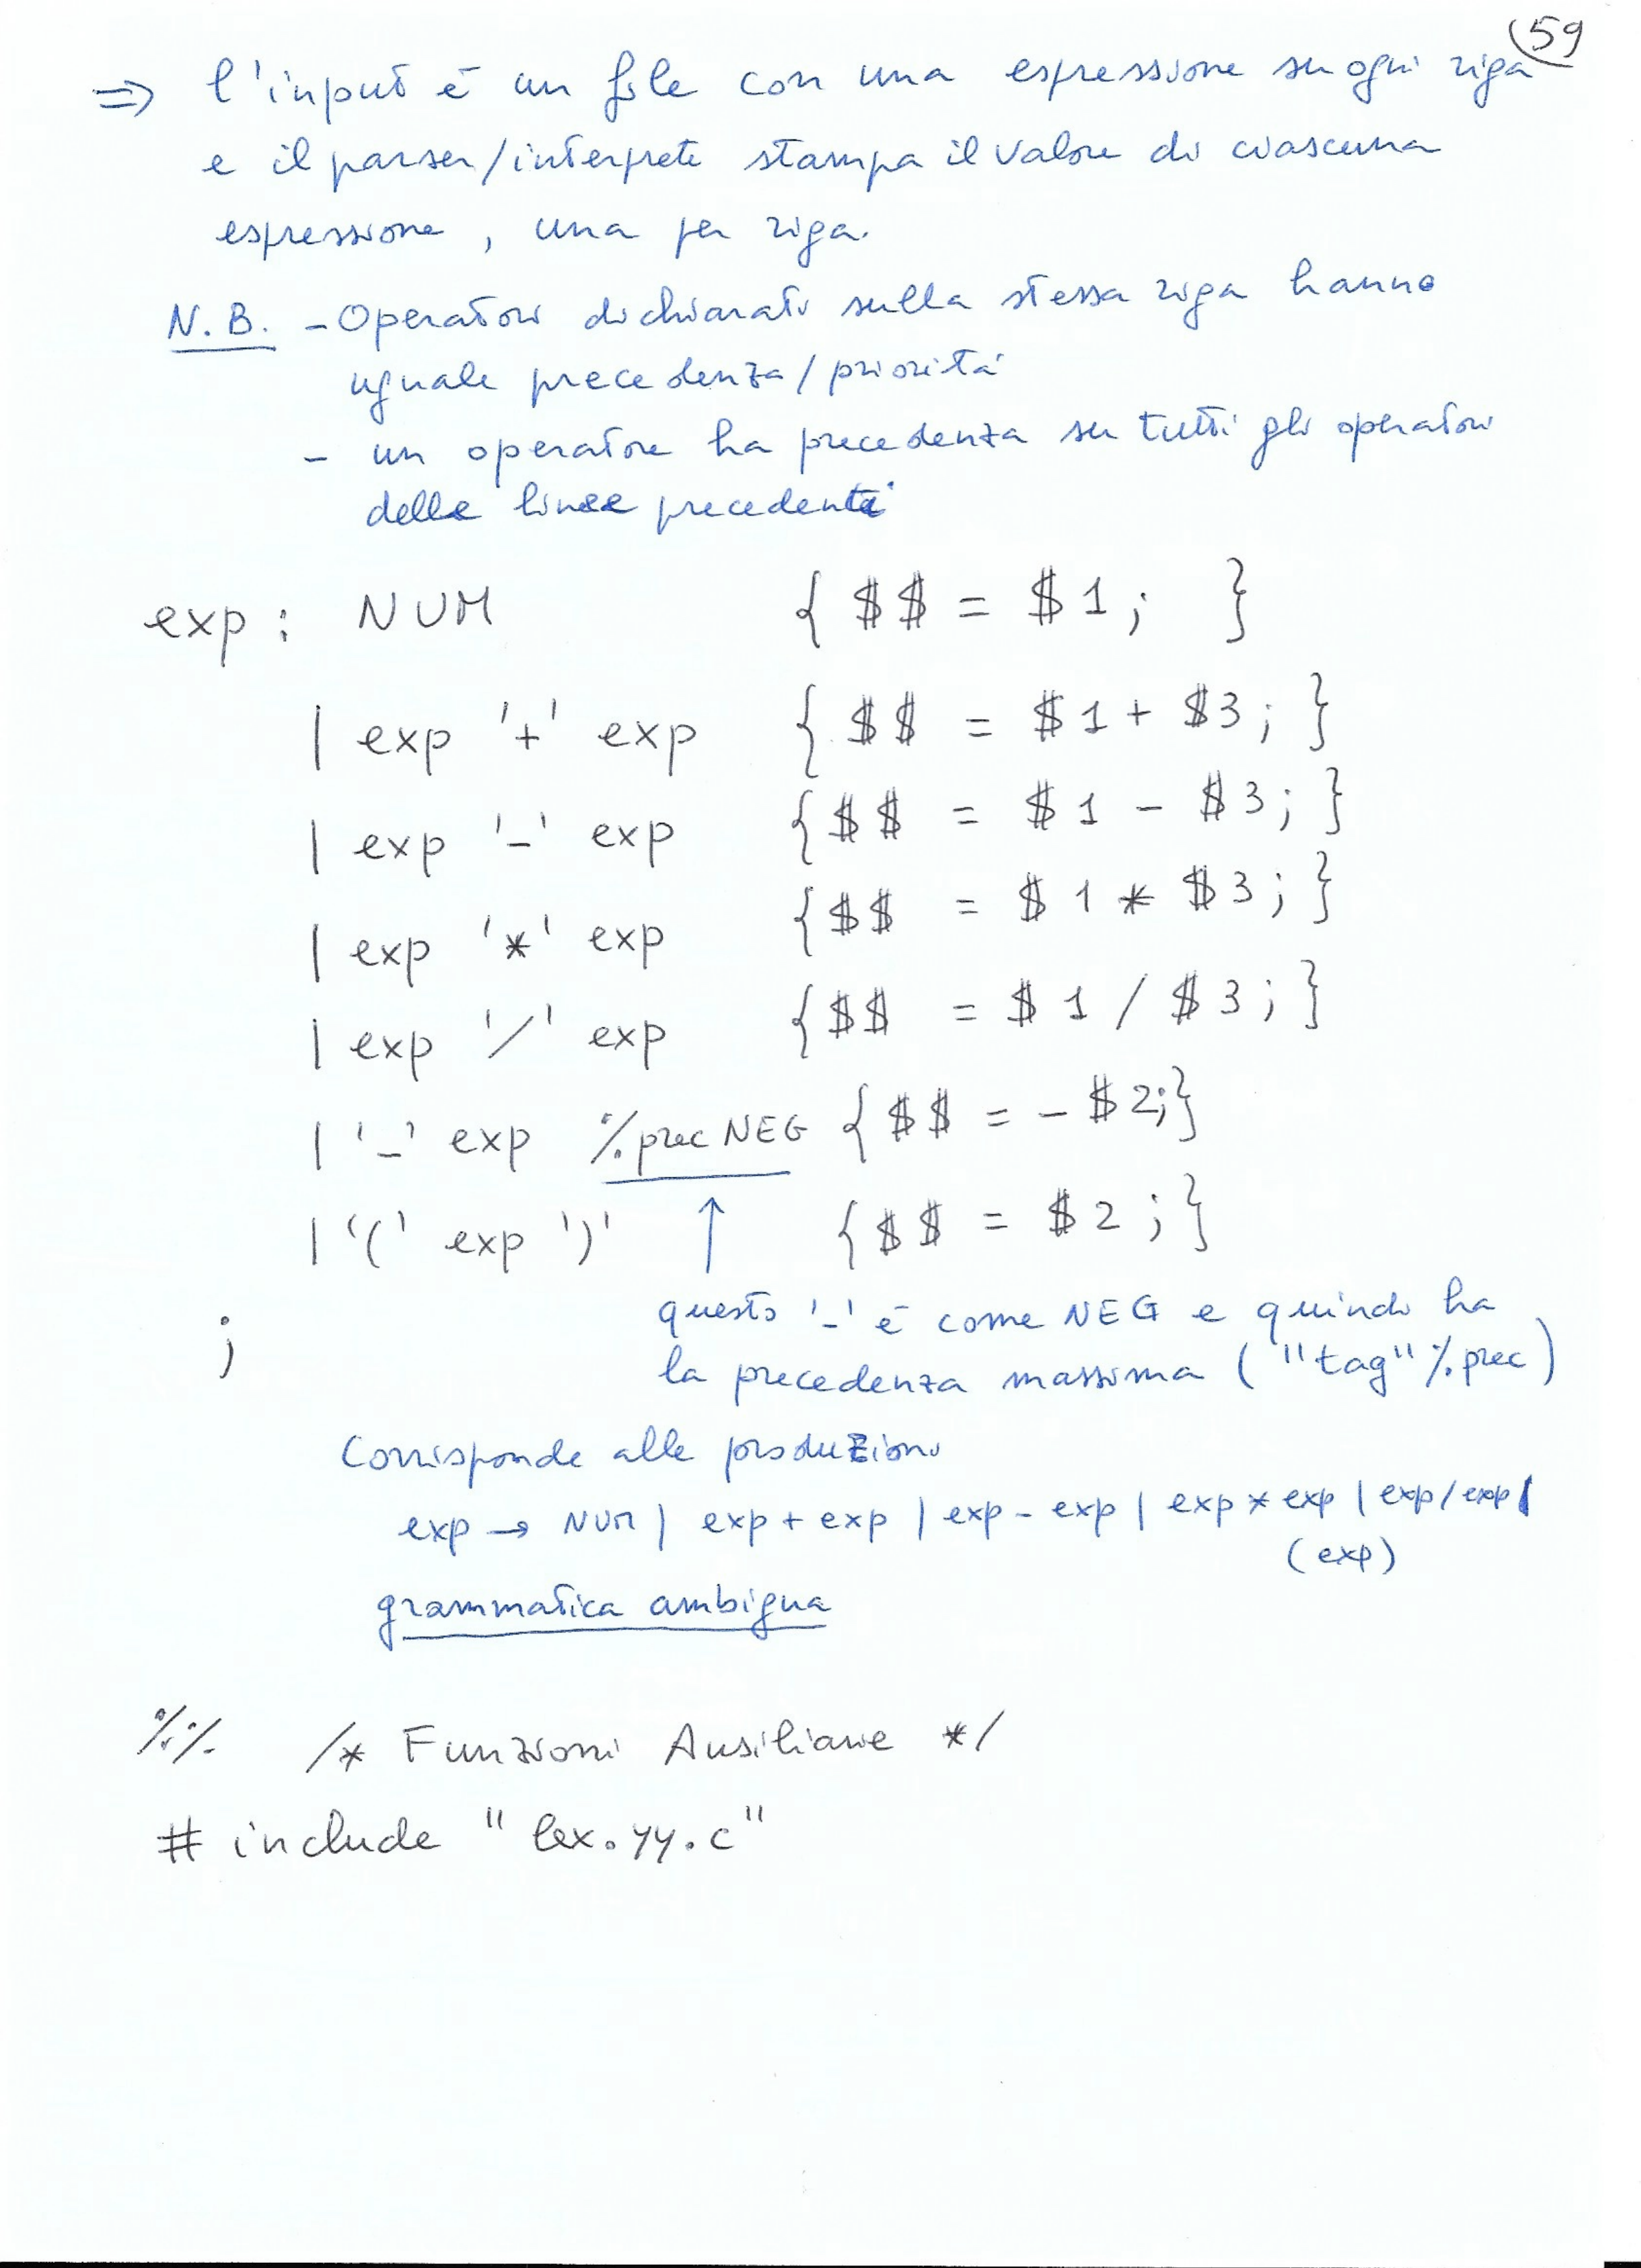 59
=> l'input è un file con una espressione su ogni riga
e il parser/interprete stampa il valore di ciascuna
espressione, una per riga.
N.B. - Operatori dichiarati sulla stessa riga hanno
uguale precedenza/priorità
- un operatore ha precedenza su tutti gli operatori
delle linee precedenti
exp : NUM { $$ = $1; }
| exp '+' exp { $$ = $1 + $3; }
| exp '-' exp { $$ = $1 - $3; }
| exp '*' exp { $$ = $1 * $3; }
| exp '/' exp { $$ = $1 / $3; }
| '-' exp %prec NEG { $$ = - $2; }
| '(' exp ')' ↑ { $$ = $2; }
questo '-' è come NEG e quindi ha
; la precedenza massima ("tag" %prec)
Corrisponde alle produzioni
exp → NUM | exp + exp | exp - exp | exp * exp | exp / exp |
(exp)
grammatica ambigua
%% /* Funzioni Ausiliarie */
# include "lex.yy.c"